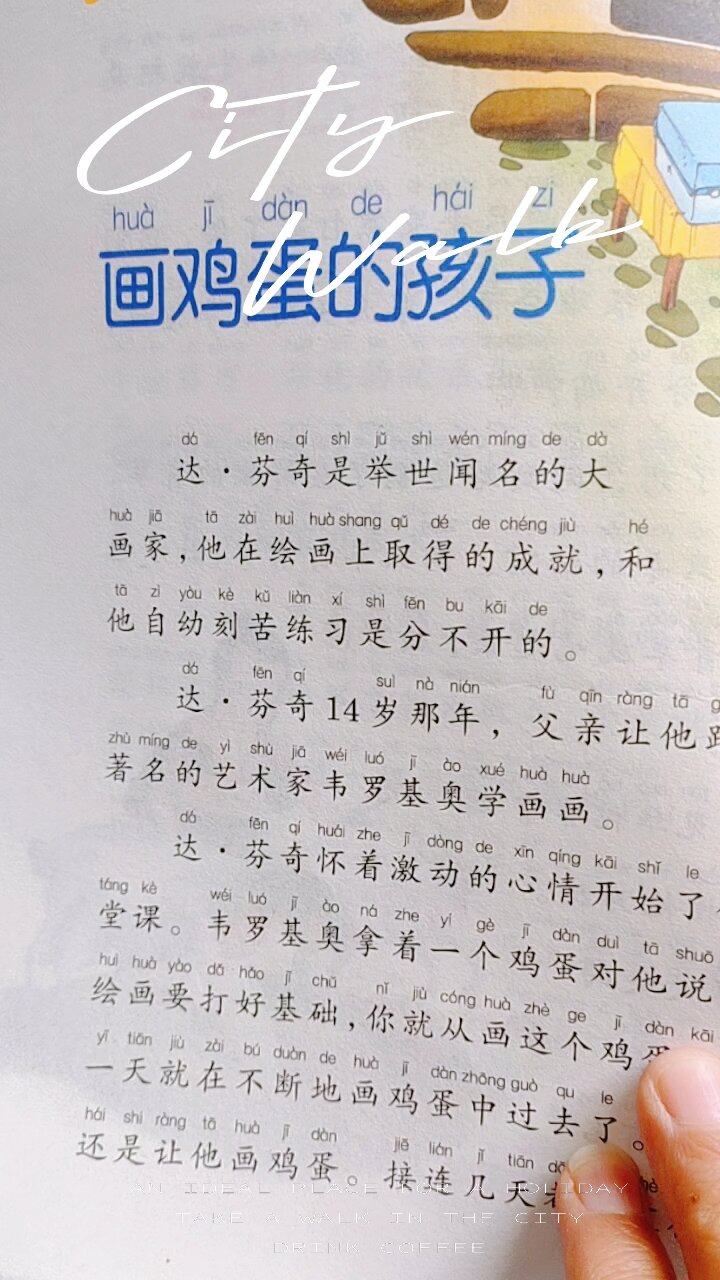 City
Walk
huà jī dàn de hái zi
画鸡蛋的孩子
dá fēn qí shì jǔ shì wén míng de dà
达·芬奇是举世闻名的大
huà jiā tā zài huì huà shang qǔ dé de chéng jiù hé
画家，他在绘画上取得的成就，和
tā zì yòu kè kǔ liàn xí shì fēn bu kāi de
他自幼刻苦练习是分不开的。
dá fēn qí suì nà nián fù qīn ràng tā
达·芬奇14岁那年，父亲让他
zhù míng de yì shù jiā wéi luó jī ào xué huà huà
著名的艺术家韦罗基奥学画画。
dá fēn qí huái zhe jī dòng de xīn qíng kāi shǐ le
达·芬奇怀着激动的心情开始了
táng kè wéi luó jī ào ná zhe yí gè jī dàn duì tā shuō
堂课。韦罗基奥拿着一个鸡蛋对他说
huì huà yào dǎ hǎo jī chǔ nǐ jiù cóng huà zhè ge jī dàn kāi
绘画要打好基础，你就从画这个鸡蛋
yī tiān jiù zài bú duàn de huà jī dàn zhōng guò qu le
一天就在不断地画鸡蛋中过去了。
hái shi ràng tā huà jī dàn jiē lián jǐ tiān
还是让他画鸡蛋。接连几天
AN IDEAL PLACE FOR A HOLIDAY
TAKE A WALK IN THE CITY
DRINK COFFEE